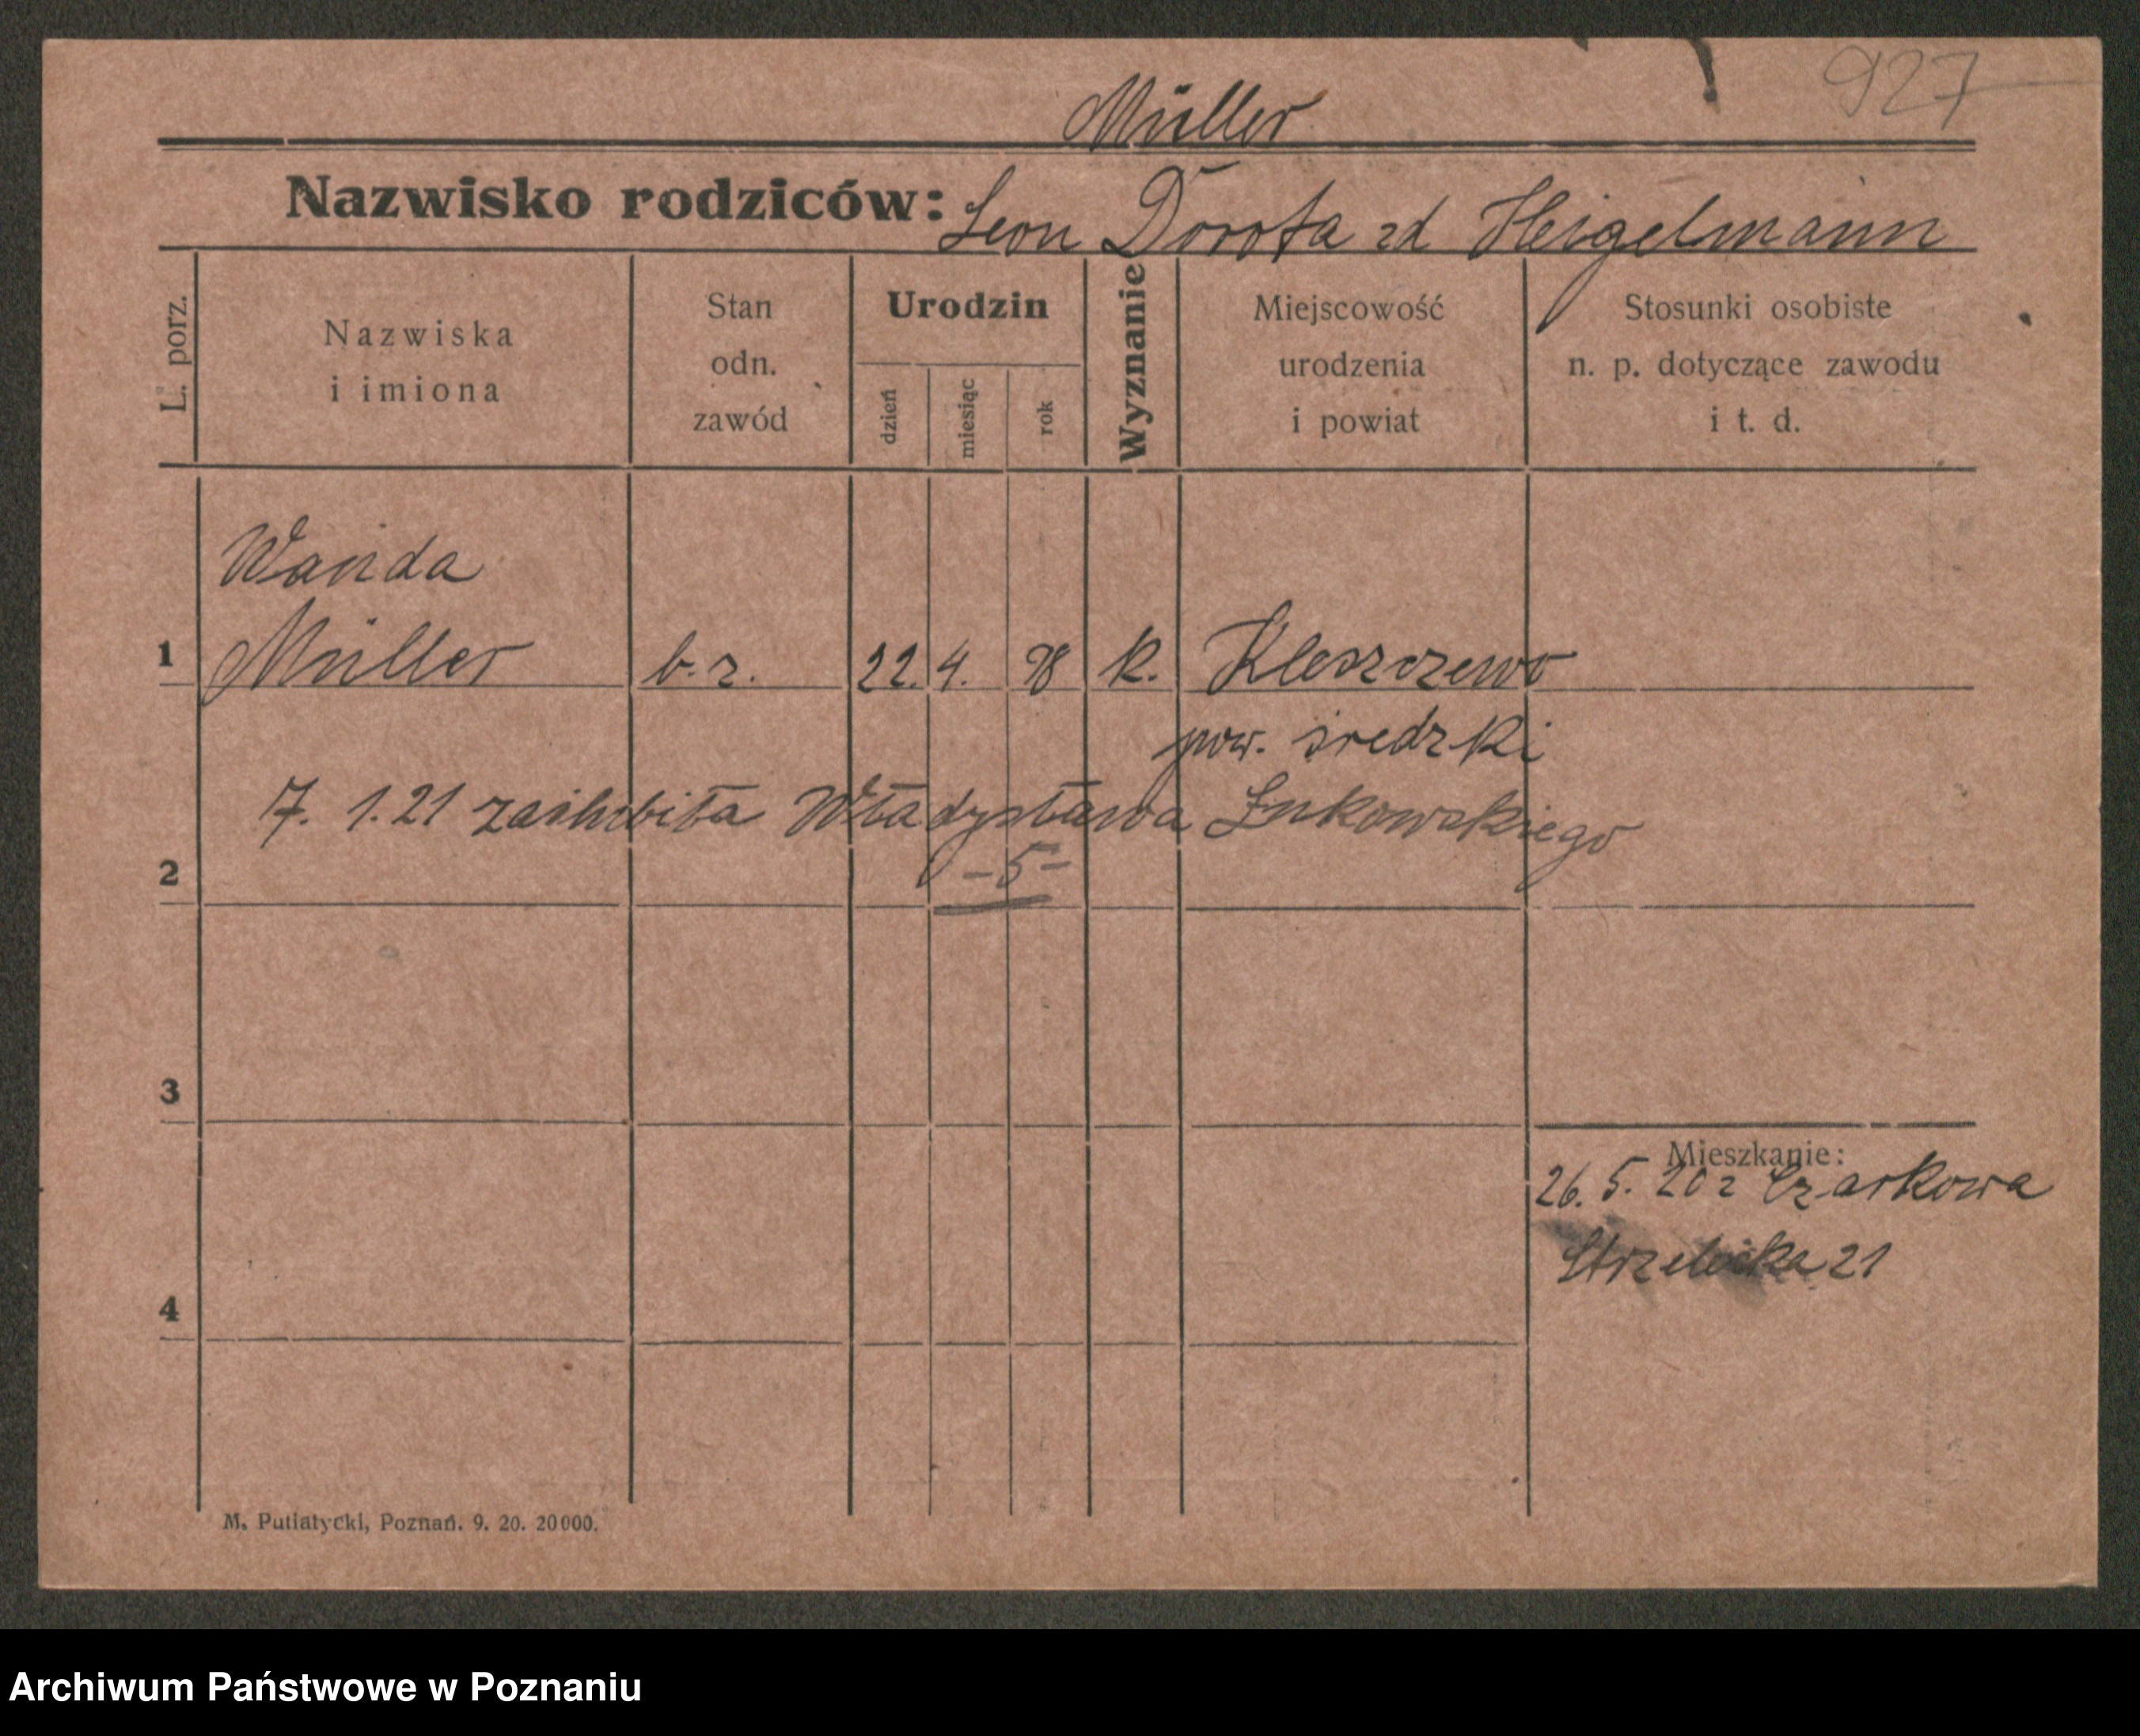 927
Müller
Nazwisko rodziców: Leon Dorota zd Heigelmann
L. porz.
Nazwiska
i imiona
Stan
odn.
zawód
Urodzin
dzień
miesiąc
rok
Wyznanie
Miejscowość
urodzenia
i powiat
Stosunki osobiste
n. p. dotyczące zawodu
i t. d.
Wanda
1 Müller b. z. 22. 4. 98 k. Kleszczewo
pow. średzki
7. 1. 21 zaślubiła Władysława Żukowskiego
2 -5-
3
Mieszkanie:
26. 5. 20 z Czarkowa
Strzelecka 21
4
M. Putiatycki, Poznań. 9. 20. 20000.
Archiwum Państwowe w Poznaniu